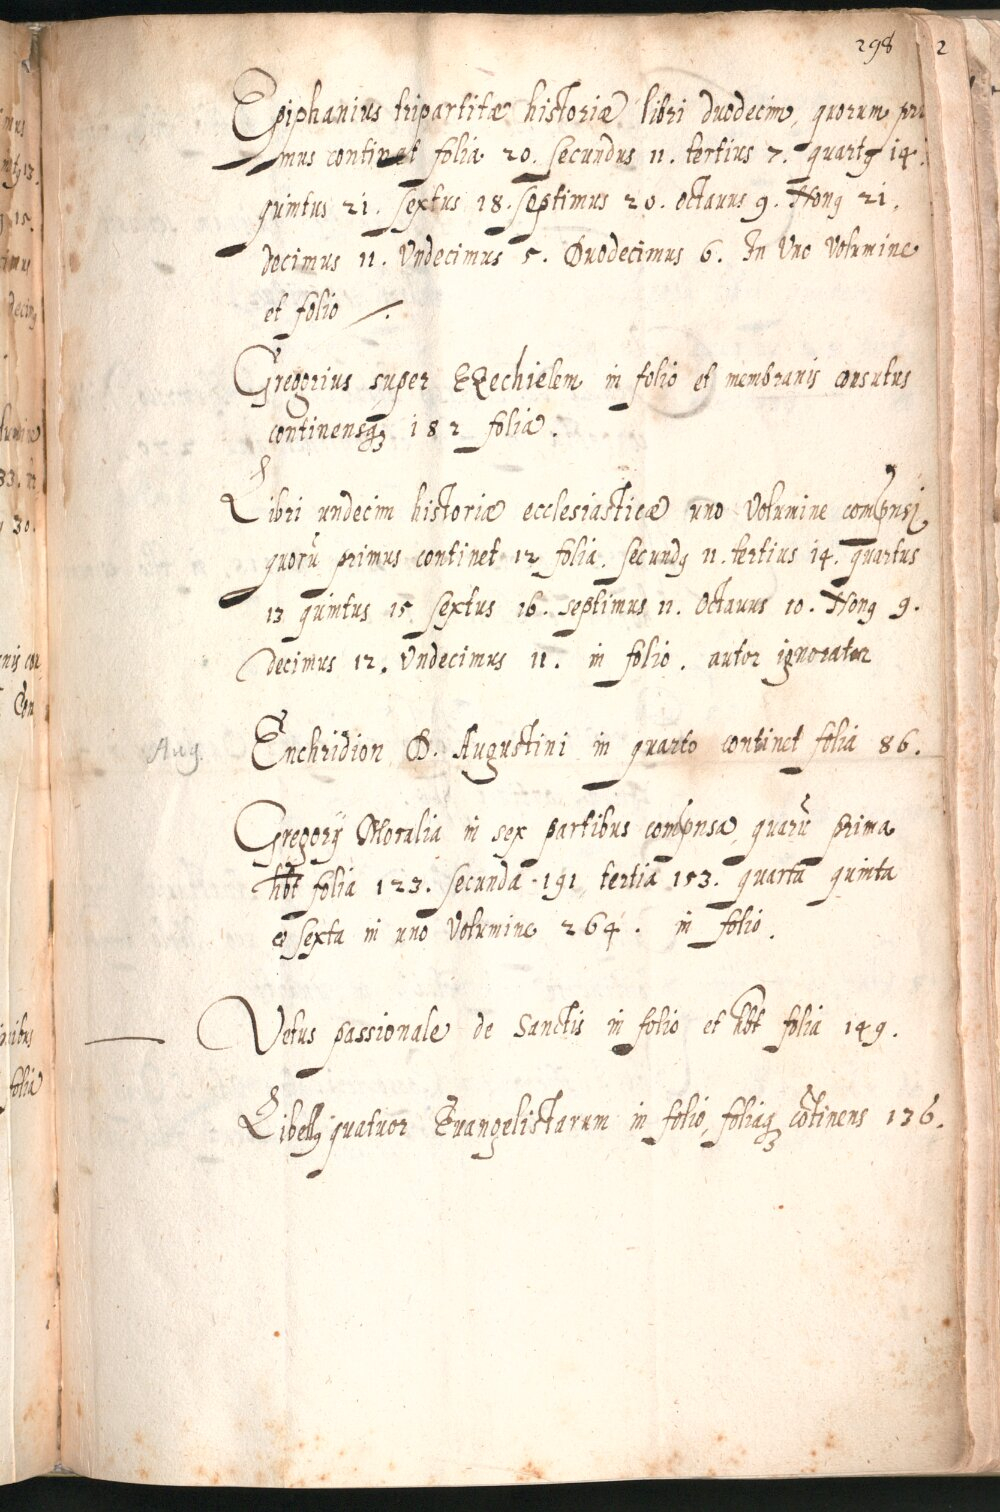 298
2
Epiphanius tripartitæ historiæ libri duodecim, quorum pri
mus continet folia 20. secundus 11. tertius 7. quartꝯ 14.
quintus 21. sextus 18. septimus 20. octauus 9. Nonꝯ 21.
decimus 11. Vndecimus 5. Duodecimus 6. In Vno Volumine
et folio
Gregorius super EZechielem in folio et membranis consutus
continensqꝫ 182 folia.
Libri undecim historiæ ecclesiasticæ uno Volumine comp̄nsi,
quorū primus continet 12 folia. secundꝯ 11. tertius 14. quartus
13 quintus 15 sextus 16. septimus 11. Octauus 10. Nonꝯ 9.
decimus 12. Vndecimus 11. in folio. autor ignoratur
Aug.
Enchridion D. Augustini in quarto continet folia 86.
Gregorij Moralia in sex partibus comp̄nsa, quarū prima
hēt folia 123. secunda 191 tertia 153. quarta quinta
et sexta in uno Volumine 264. in folio.
Vetus passionale de Sanctis in folio et hēt folia 149.
Libellꝯ quatuor Euangelistarum in folio, foliaqꝫ cōtinens 136.